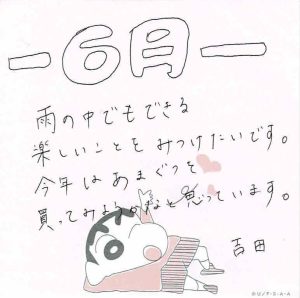 －6月－
雨の中でもできる
楽しいことをみつけたいです。
今年はあまぐつを
買ってみようかなと思っています。
吉田